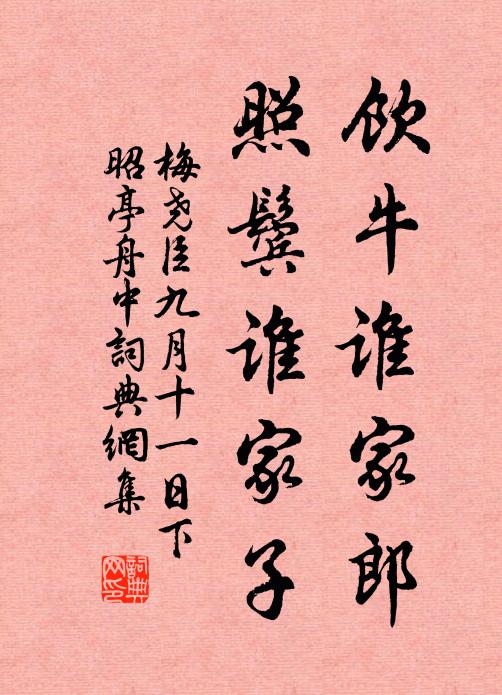 饮牛谁家郎
照鬓谁家子
梅尧臣九月十一日下
昭亭舟中詞典網集
詞典网印